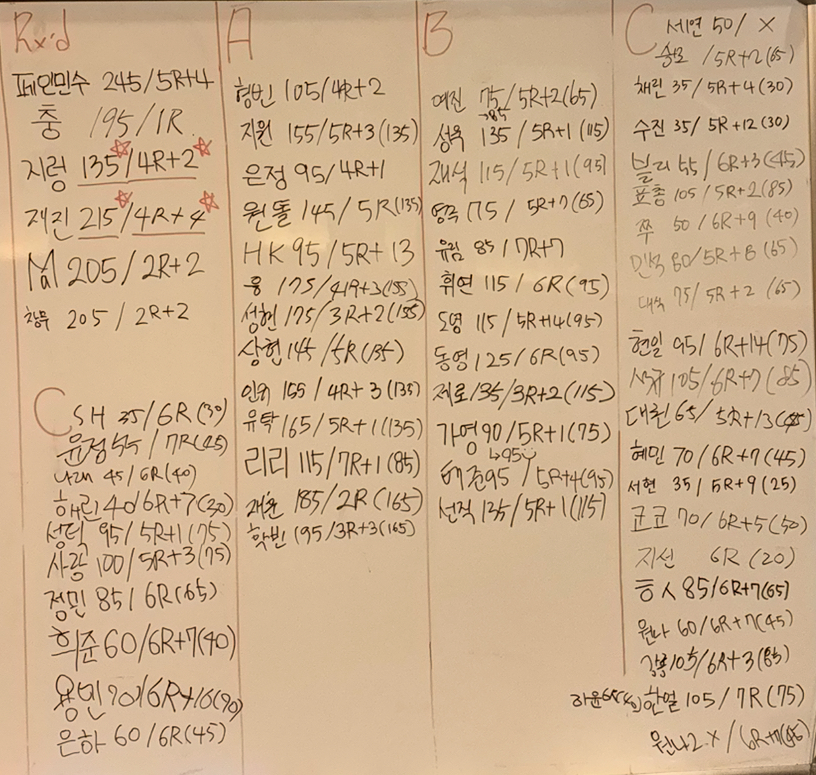 Rx'd
페인민수 245/5R+4
충 195/1R
지령 135/4R+2
재진 215/4R+4
M 205/2R+2
창무 205/2R+2
C
SH 35/6R(30)
윤정 55/7R(45)
45/6R(40)
해린 40/6R+7(30)
성택 95/5R+1(75)
사랑 100/5R+3(75)
정민 85/6R(65)
희준 60/6R+7(40)
용빈
은하 60/6R(45)
A
형빈 105/4R+2
지원 155/5R+3(135)
은정 95/4R+1
원똘 145/5R(135)
HK 95/5R+13
용 175/4R+3(155)
성현 175/3R+2(155)
상현 145/5R(135)
155/4R+3(135)
유탁 165/5R+1(135)
리리 115/7R+1(85)
재훈 185/2R(165)
학빈 195/3R+3(165)
B
예진 75/5R+2(65)
→85
성욱 135/5R+1(115)
재식 115/5R+1(95)
영죽 75/5R+7(65)
유림 85/7R+7
휘연 115/6R(95)
도영 115/5R+14(95)
동영 125/6R(95)
제로 135/3R+2(115)
가영 90/5R+1(75)
↳95
태준 95/5R+4(95)
선직 135/5R+1(115)
C
세연 50/X
/5R+2(65)
채린 35/5R+4(30)
수진 35/5R+12(30)
블리 55/6R+3(45)
표총 105/5R+2(85)
쭈 50/6R+9(40)
민석 80/5R+8(65)
대석 75/5R+2(65)
현일 95/6R+14(75)
105/6R+7(85)
대린 65/5R+13
혜민 70/6R+7(45)
서현 35/5R+9(25)
균코 70/6R+5(50)
지선 6R(20)
흥人 85/6R+7(65)
원나 60/6R+7(45)
105/6R+3(85)
하윤
한얼 105/7R(75)
원나2 X/6R+7(45)